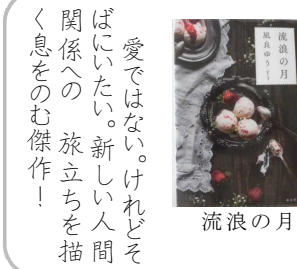 流浪の月
凪良ゆう
流浪の月
愛ではない。けれどそ
ばにいたい。新しい人間
関係への　旅立ちを描
く息をのむ傑作！